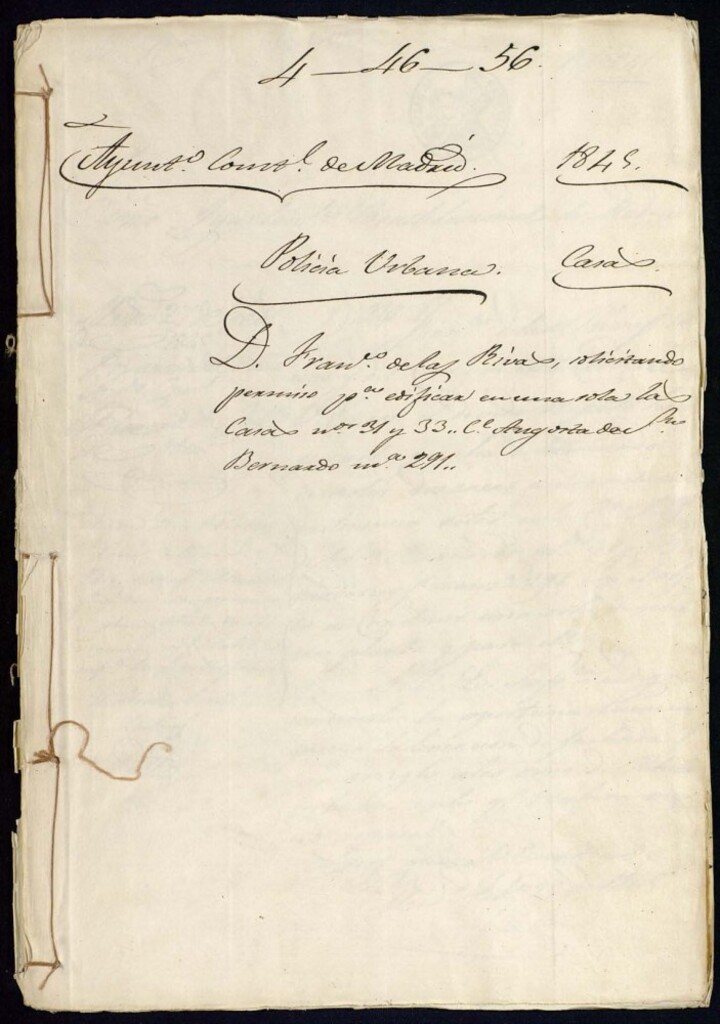 4-46-56.
Ayunto. Constl. de Madrid. 1845.
Policia Urbana. Casas.
D. Franco. de las Rivas, solicitando
permiso pa. edificar en una sola las
Casas nos. 31 y 33.. Ce. Angosta de Sn.
Bernardo ma. 291..